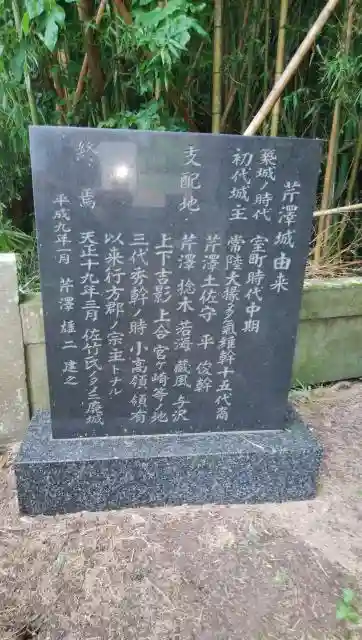 芹澤城由来
築城ノ時代　室町時代中期
初代城主　常陸大掾多気雍幹十五代裔
芹澤土佐守　平　俊幹
支配地　芹澤　捻木　若海　蕨　風　与沢
上下吉影　上合　宮ケ崎等ノ地
三代秀幹ノ時　小高領領有
以来行方郡ノ宗主トナル
終焉　天正十九年二月　佐竹氏ノタメニ廃城
平成九年一月　芹澤雄二　建之